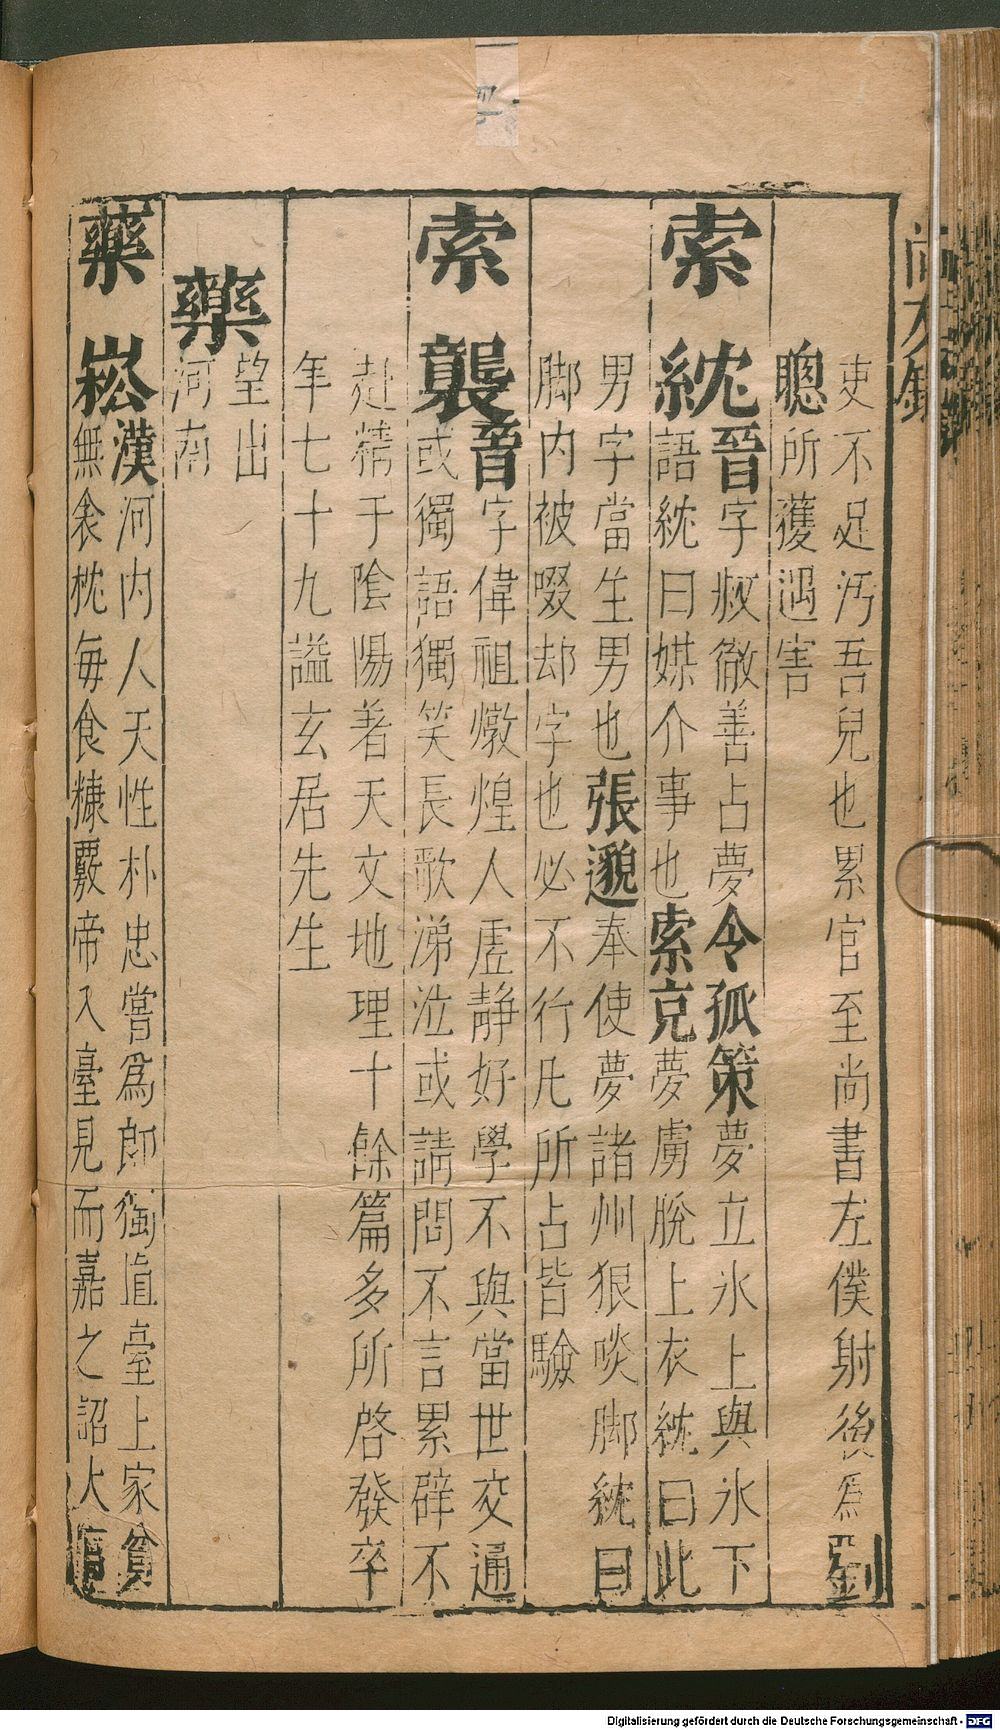 吏不足汚吾兒也累官至尚書左僕射後爲劉
聰所獲遇害
索紞晉字叔徹善占夢令狐策夢立氷上與氷下
語紞曰媒介事也索克夢虜脫上衣紞曰此
男字當生男也張邈奉使夢諸州狠啖脚紞曰
脚内被啜却字也必不行凡所占皆驗
索襲晉字偉祖燉煌人虛靜好學不與當世交通
或獨語獨笑長歌涕泣或請問不言累辟不
赴精于陰陽著天文地理十餘篇多所啓發卒
年七十九謚玄居先生
藥望出
河南
藥崧漢河内人天性朴忠嘗爲郎獨直臺上家貧
無衾枕每食糠覈帝入臺見而嘉之詔大
尚友錄
Digitalisierung gefördert durch die Deutsche Forschungsgemeinschaft - DFG